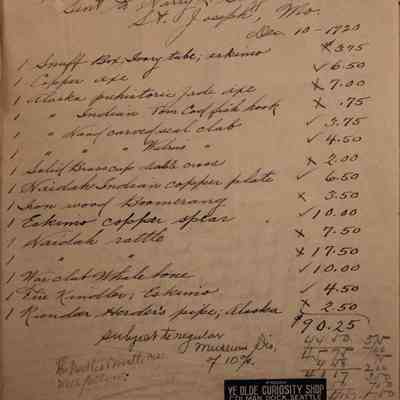 Sent to Harry
St. Joseph, Mo.
Dec 10 - 1920
1 Snuff Box; Ivory tube; eskimo x 3.75
1 Copper axe ✓ 6.50
1 Alaska prehistoric jade axe x 7.00
1 " Indian Tom Cod fish hook x .75
1 " Hand carved seal club ✓ 3.75
1 " " " Walrus " ✓ 4.50
1 Solid Brass cup x 2.00
1 Haidah Indian copper plate ✓ 6.50
1 Iron wood boomerang x 3.50
1 Eskimo copper spear ✓ 10.00
1 Haidah rattle x 7.50
1 " " x 17.50
1 War club Whale bone ✓ 10.00
1 Fire Kindler; Eskimo ✓ 4.50
1 Reindeer Herder's pipe; Alaska x 2.50
$90.25
Subject to regular
Museum Dis.
of 10%.
YE OLDE CURIOSITY SHOP
COLMAN DOCK, SEATTLE